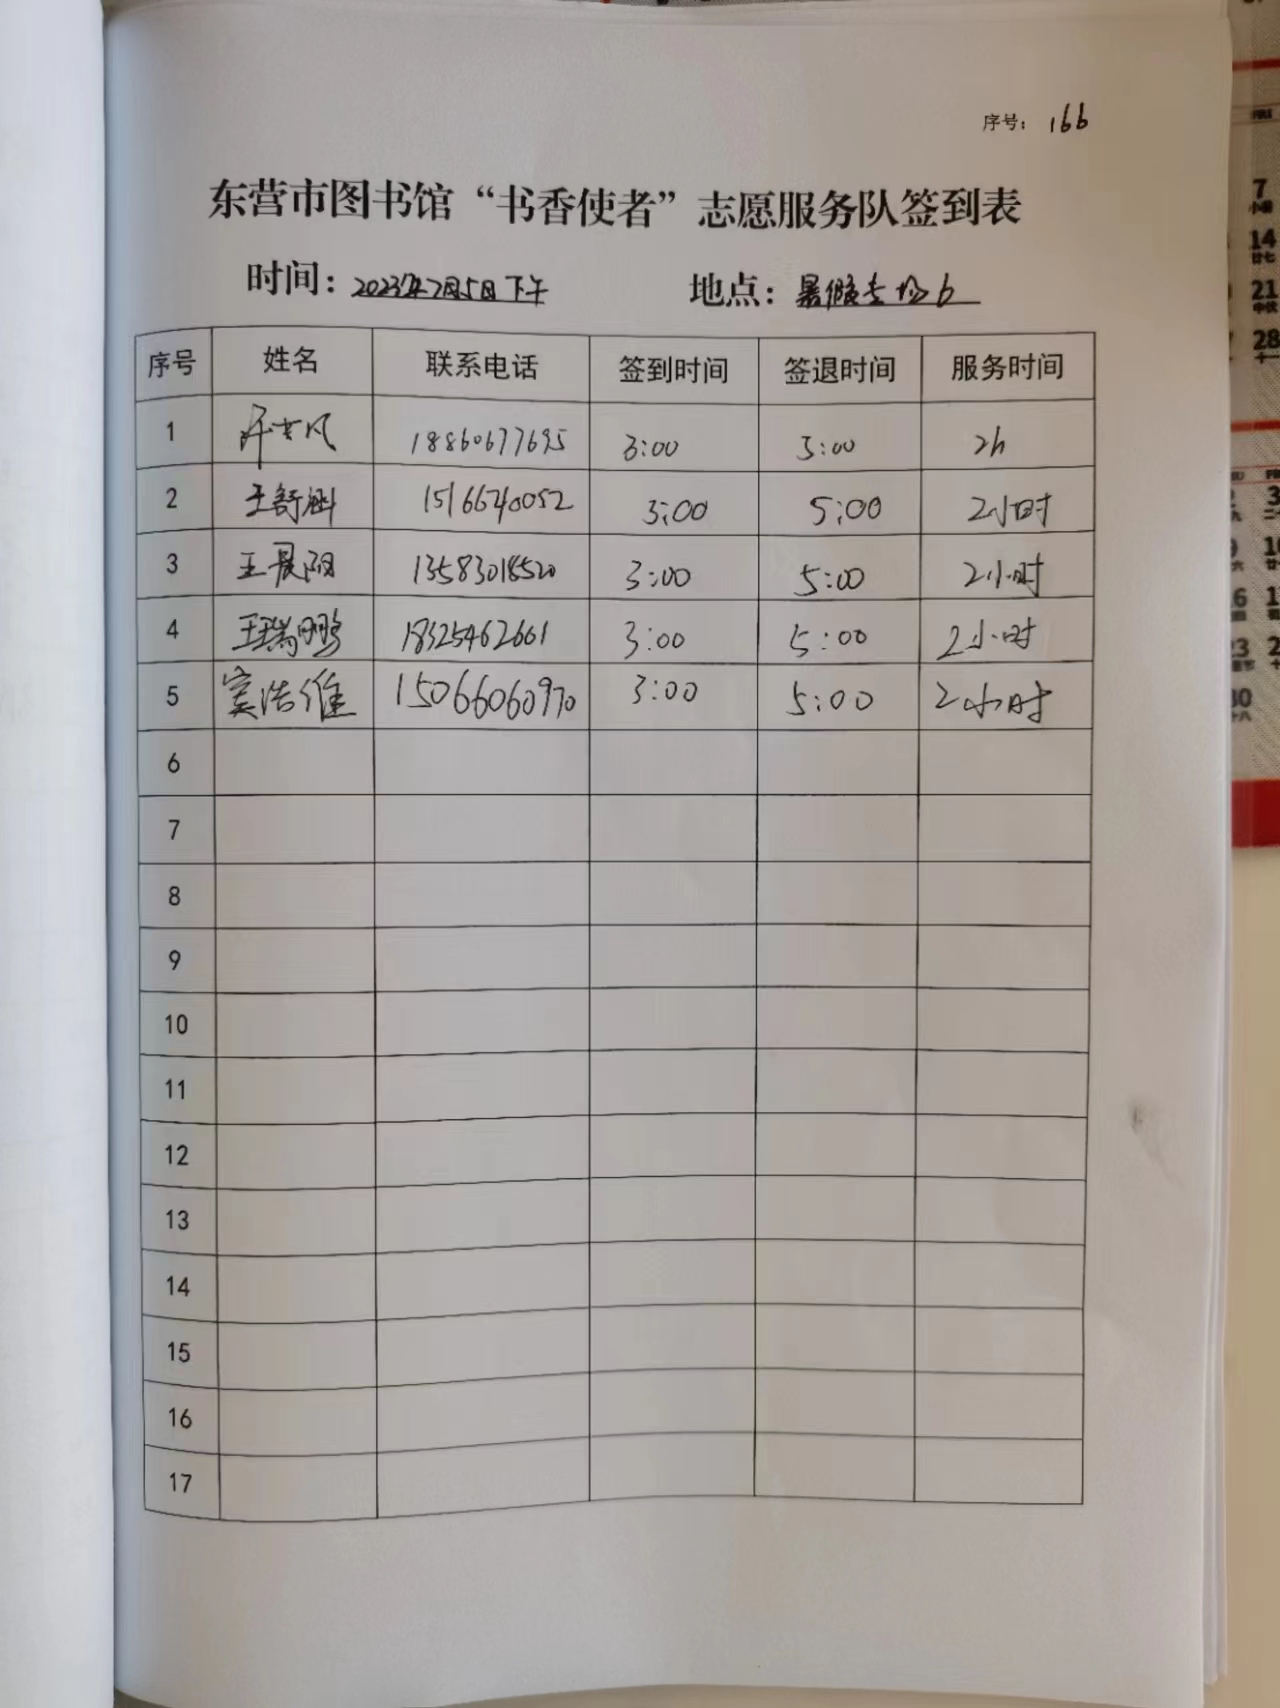 序号：166
东营市图书馆“书香使者”志愿服务队签到表
时间：2023年7月5日下午 地点：暑假专场6
序号 姓名 联系电话 签到时间 签退时间 服务时间
1 18860677695 3:00 5:00 2h
2 王舒涵 15166240052 3:00 5:00 2小时
3 王晨阳 13583018520 3:00 5:00 2小时
4 王瑞鹏 18325462661 3:00 5:00 2小时
5 窦浩维 15066060970 3:00 5:00 2小时
6
7
8
9
10
11
12
13
14
15
16
17
7
14
廿七
21
28
十一